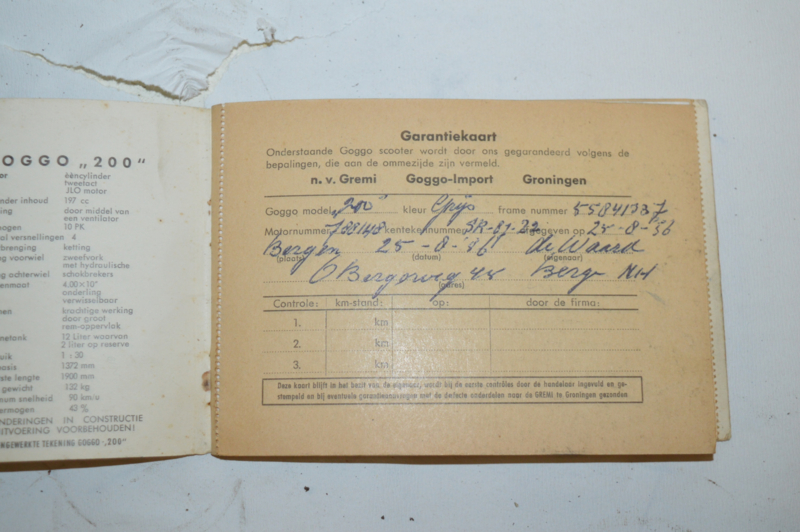 OGGO „200"
ééncylinder
tweetact
JLO motor
nder inhoud 197 cc
ing door middel van
een ventilator
ogen 10 PK
al versnellingen 4
brenging ketting
ng voorwiel zweefvork
met hydraulische
ing achterwiel schokbrekers
enmaat 4.00×10"
onderling
verwisselbaar
en krachtige werking
door groot
rem-oppervlak
netank 12 Liter waarvan
2 liter op reserve
uik 1:30
asis 1372 mm
ste lengte 1900 mm
gewicht 132 kg
num snelheid 90 km/u
ermogen 43 %
NDERINGEN IN CONSTRUCTIE
ITVOERING VOORBEHOUDEN!
NGEWERKTE TEKENING GOGGO „200"
Garantiekaart
Onderstaande Goggo scooter wordt door ons gegarandeerd volgens de
bepalingen, die aan de ommezijde zijn vermeld.
n. v. Gremi Goggo-Import Groningen
Goggo model „200" kleur Grijs frame nummer 55841337
Motornummer kentekennummer afgegeven op 25-8-'56
Bergen 25-8-'56 de Waard
(plaats) (datum) (eigenaar)
Bergerweg 45 Bergen NH
(adres)
Controle: km-stand: op: door de firma:
1. km
2. km
3. km
Deze kaart blijft in het bezit van de eigenaar, wordt bij de eerste contrôles door de handelaar ingevuld en ge-
stempeld en bij eventuele garantieaanvragen met de defecte onderdelen naar de GREMI te Groningen gezonden